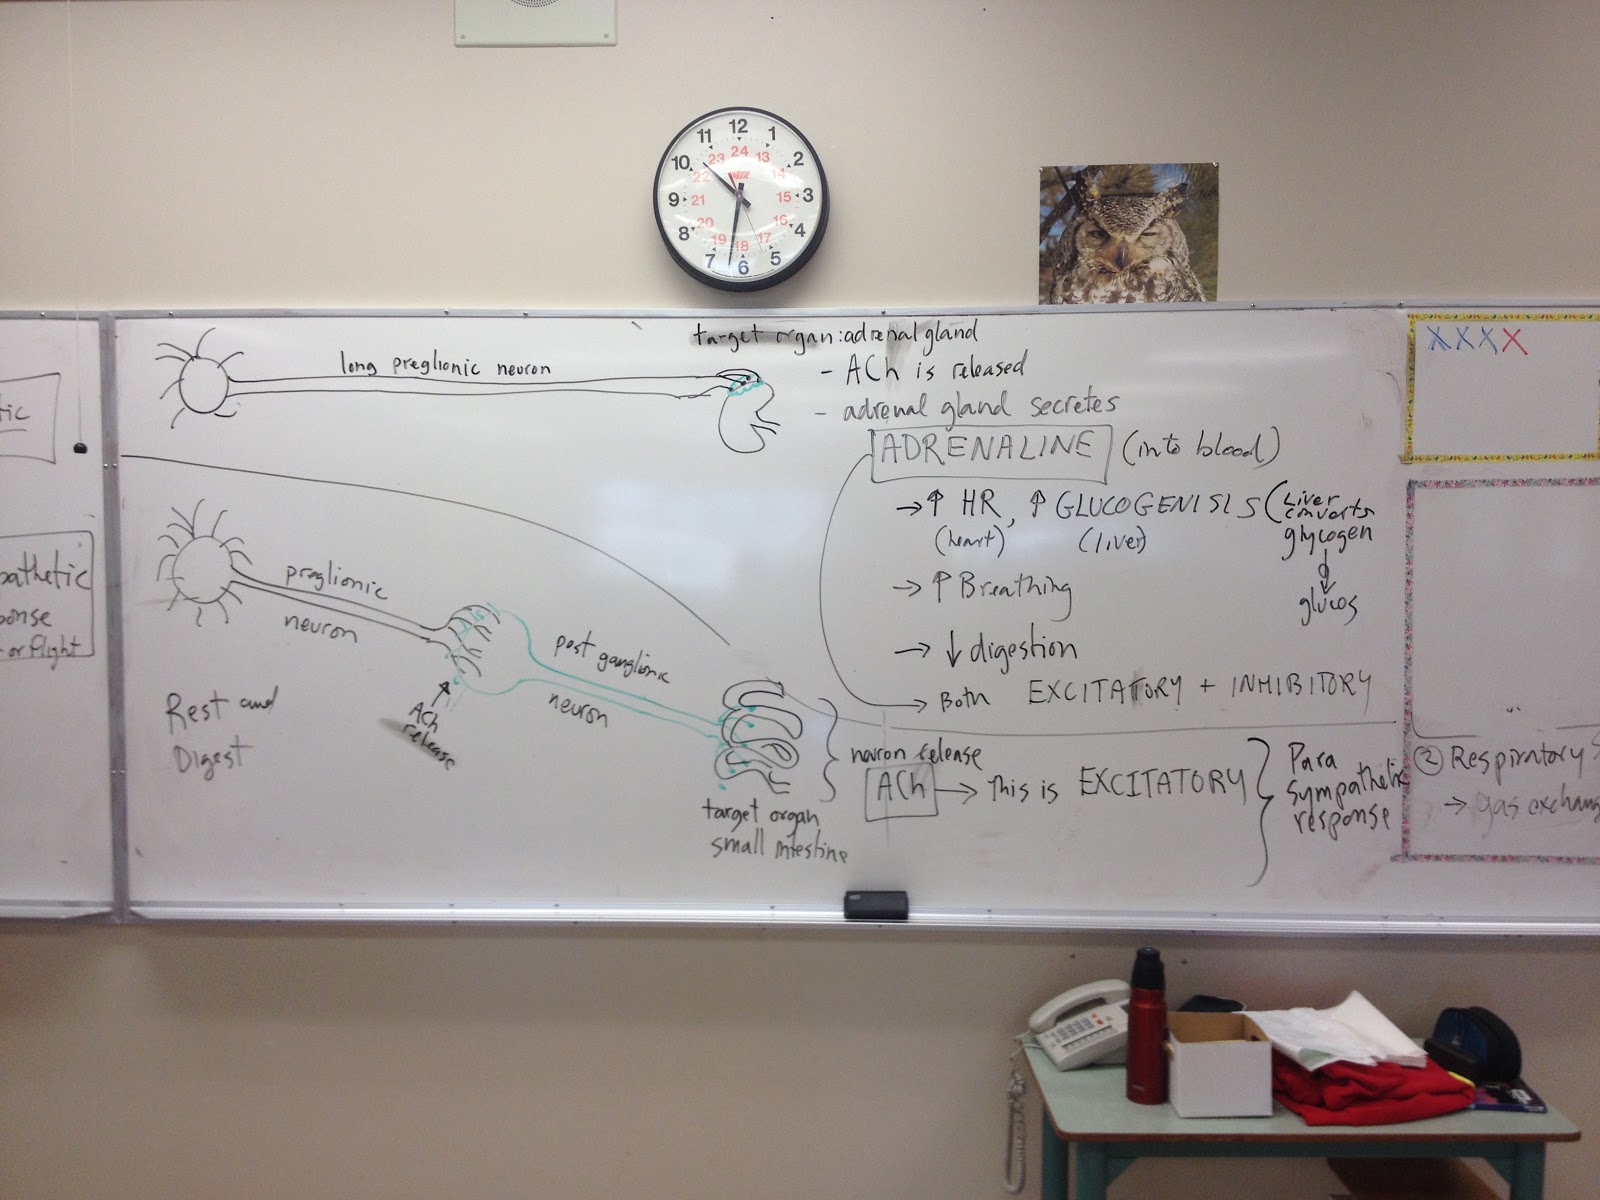 11 12 1
10 2
9 3
8 4
7 6 5
23 24 13
22 14
21 15
20 16
19 18 17
tic
pathetic
ponse
or flight
long preglionic neuron
target organ: adrenal gland
- ACh is released
- adrenal gland secretes
ADRENALINE (into blood)
→ ↑ HR, ↑ GLUCOGENISIS (Liver
converts
(heart) (liver) glycogen
↓
glucos
→ ↑ Breathing
→ ↓ digestion
→ Both EXCITATORY + INHIBITORY
preglionic
neuron
ACh
release
post ganglionic
neuron
Rest and
Digest
target organ
small intestine
neuron release
ACh → This is EXCITATORY
Para
sympathetic
response
XXXX
② Respiratory S
→ gas exchang